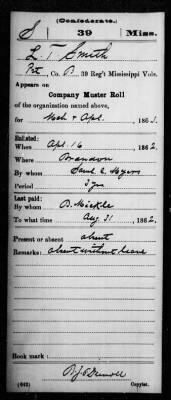 (Confederate.)
S 39 Miss.
L T Smith
Pvt, Co. B, 39 Reg't Mississippi Vols.
Appears on
Company Muster Roll
of the organization named above,
for Mch & Apl, 1863.
Enlisted:
When Apl. 16, 1862.
Where Brandon
By whom Saml. C. Myers
Period 3 yrs
Last paid:
By whom D. Mickle
To what time Aug 31, 1862.
Present or absent absent
Remarks: absent without leave
Book mark:
(642) Copyist.